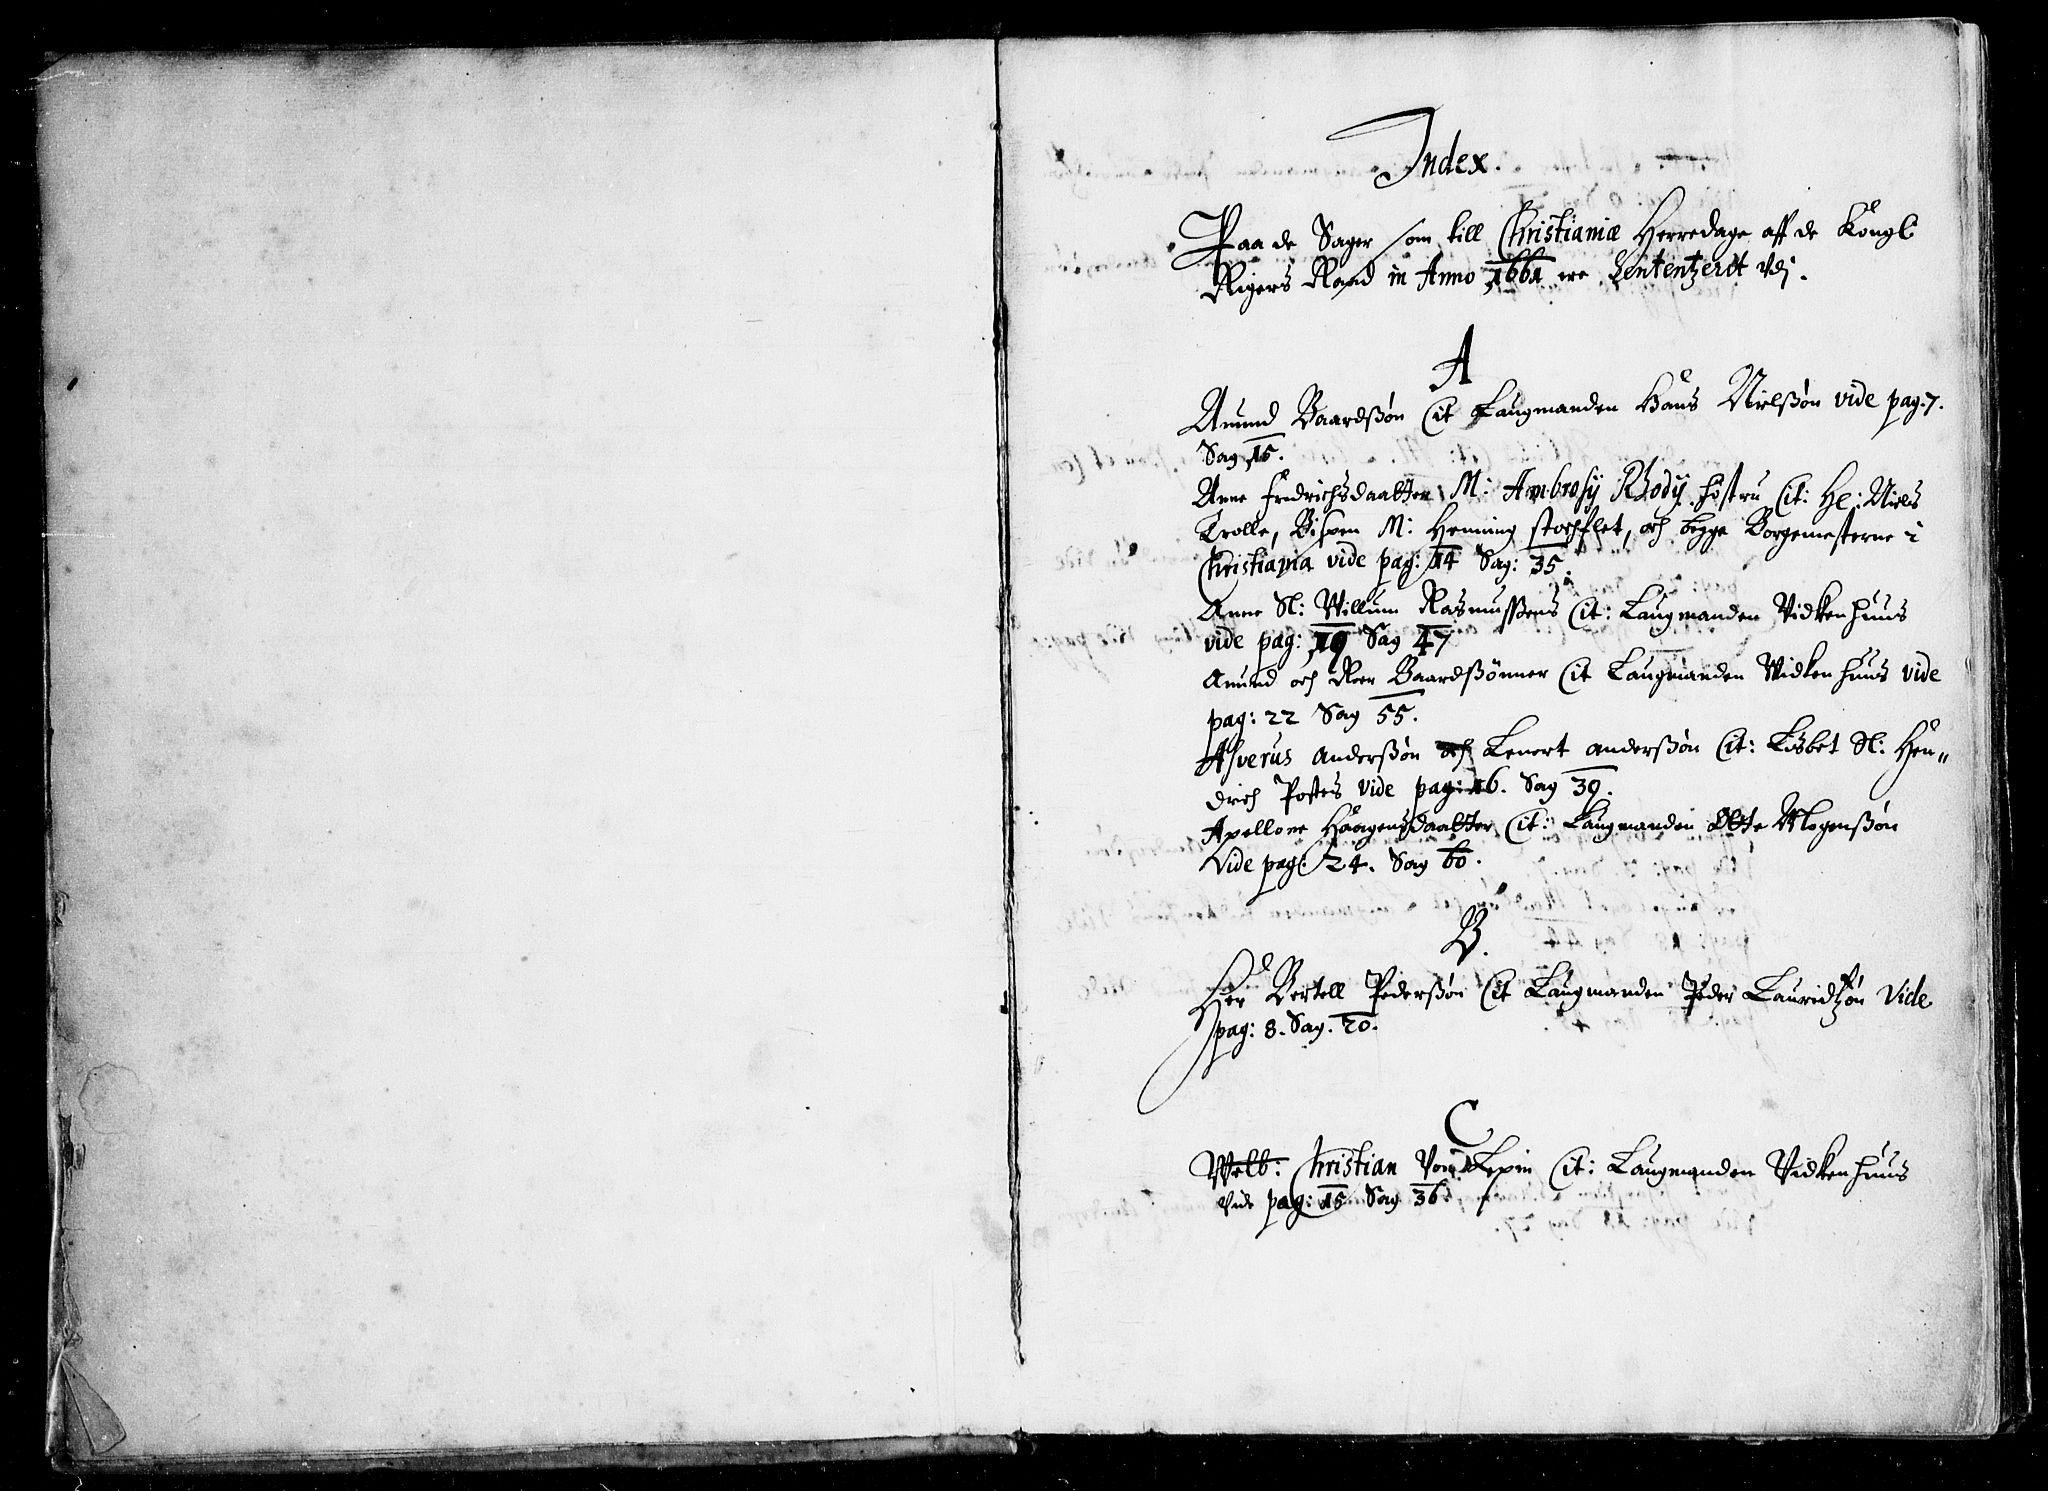 Index.
Paa de Sager som till Christianiæ Herredage aff de Kongl
Rigens Raad in Anno 1661 ere Sententzerit Vdj.
A
Amund Baardßøn Cit Laugmanden Hans Nielßøn vide pag. 7.
Sag 15.
Anne Fredrichsdaatter M: Ambrosij Rhodij Hostru Cit: He: Niels
Trolle, Bispen M: Henning Stochflet, och begge Borgemesterne i
Christiania vide pag: 14 Sag: 35.
Anne Sl: Willum Rasmussens Cit: Laugmanden Vidken Huus
vide pag: 19 Sag 47
Amund och Roer Baardßönner Cit Laugmanden Widken Huus vide
pag: 22 Sag 55.
Asverus Anderßøn och Lenert Anderßøn Cit: Lisbet Sl: Hen„
drich Postes vide pag: 16. Sag 39.
Apellone Haagensdaatter Cit: Laugmanden Otte Mogenßøn
Vide pag: 24. Sag 60.
B.
Her Bertell Pederßøn Cit Laugmanden Peder Lauridtzøn Vide
pag: 8. Sag. 20.
C
Welb: Christian Von Lepin Cit: Laugmanden Vidken Huus
Vide pag: 15 Sag 36.